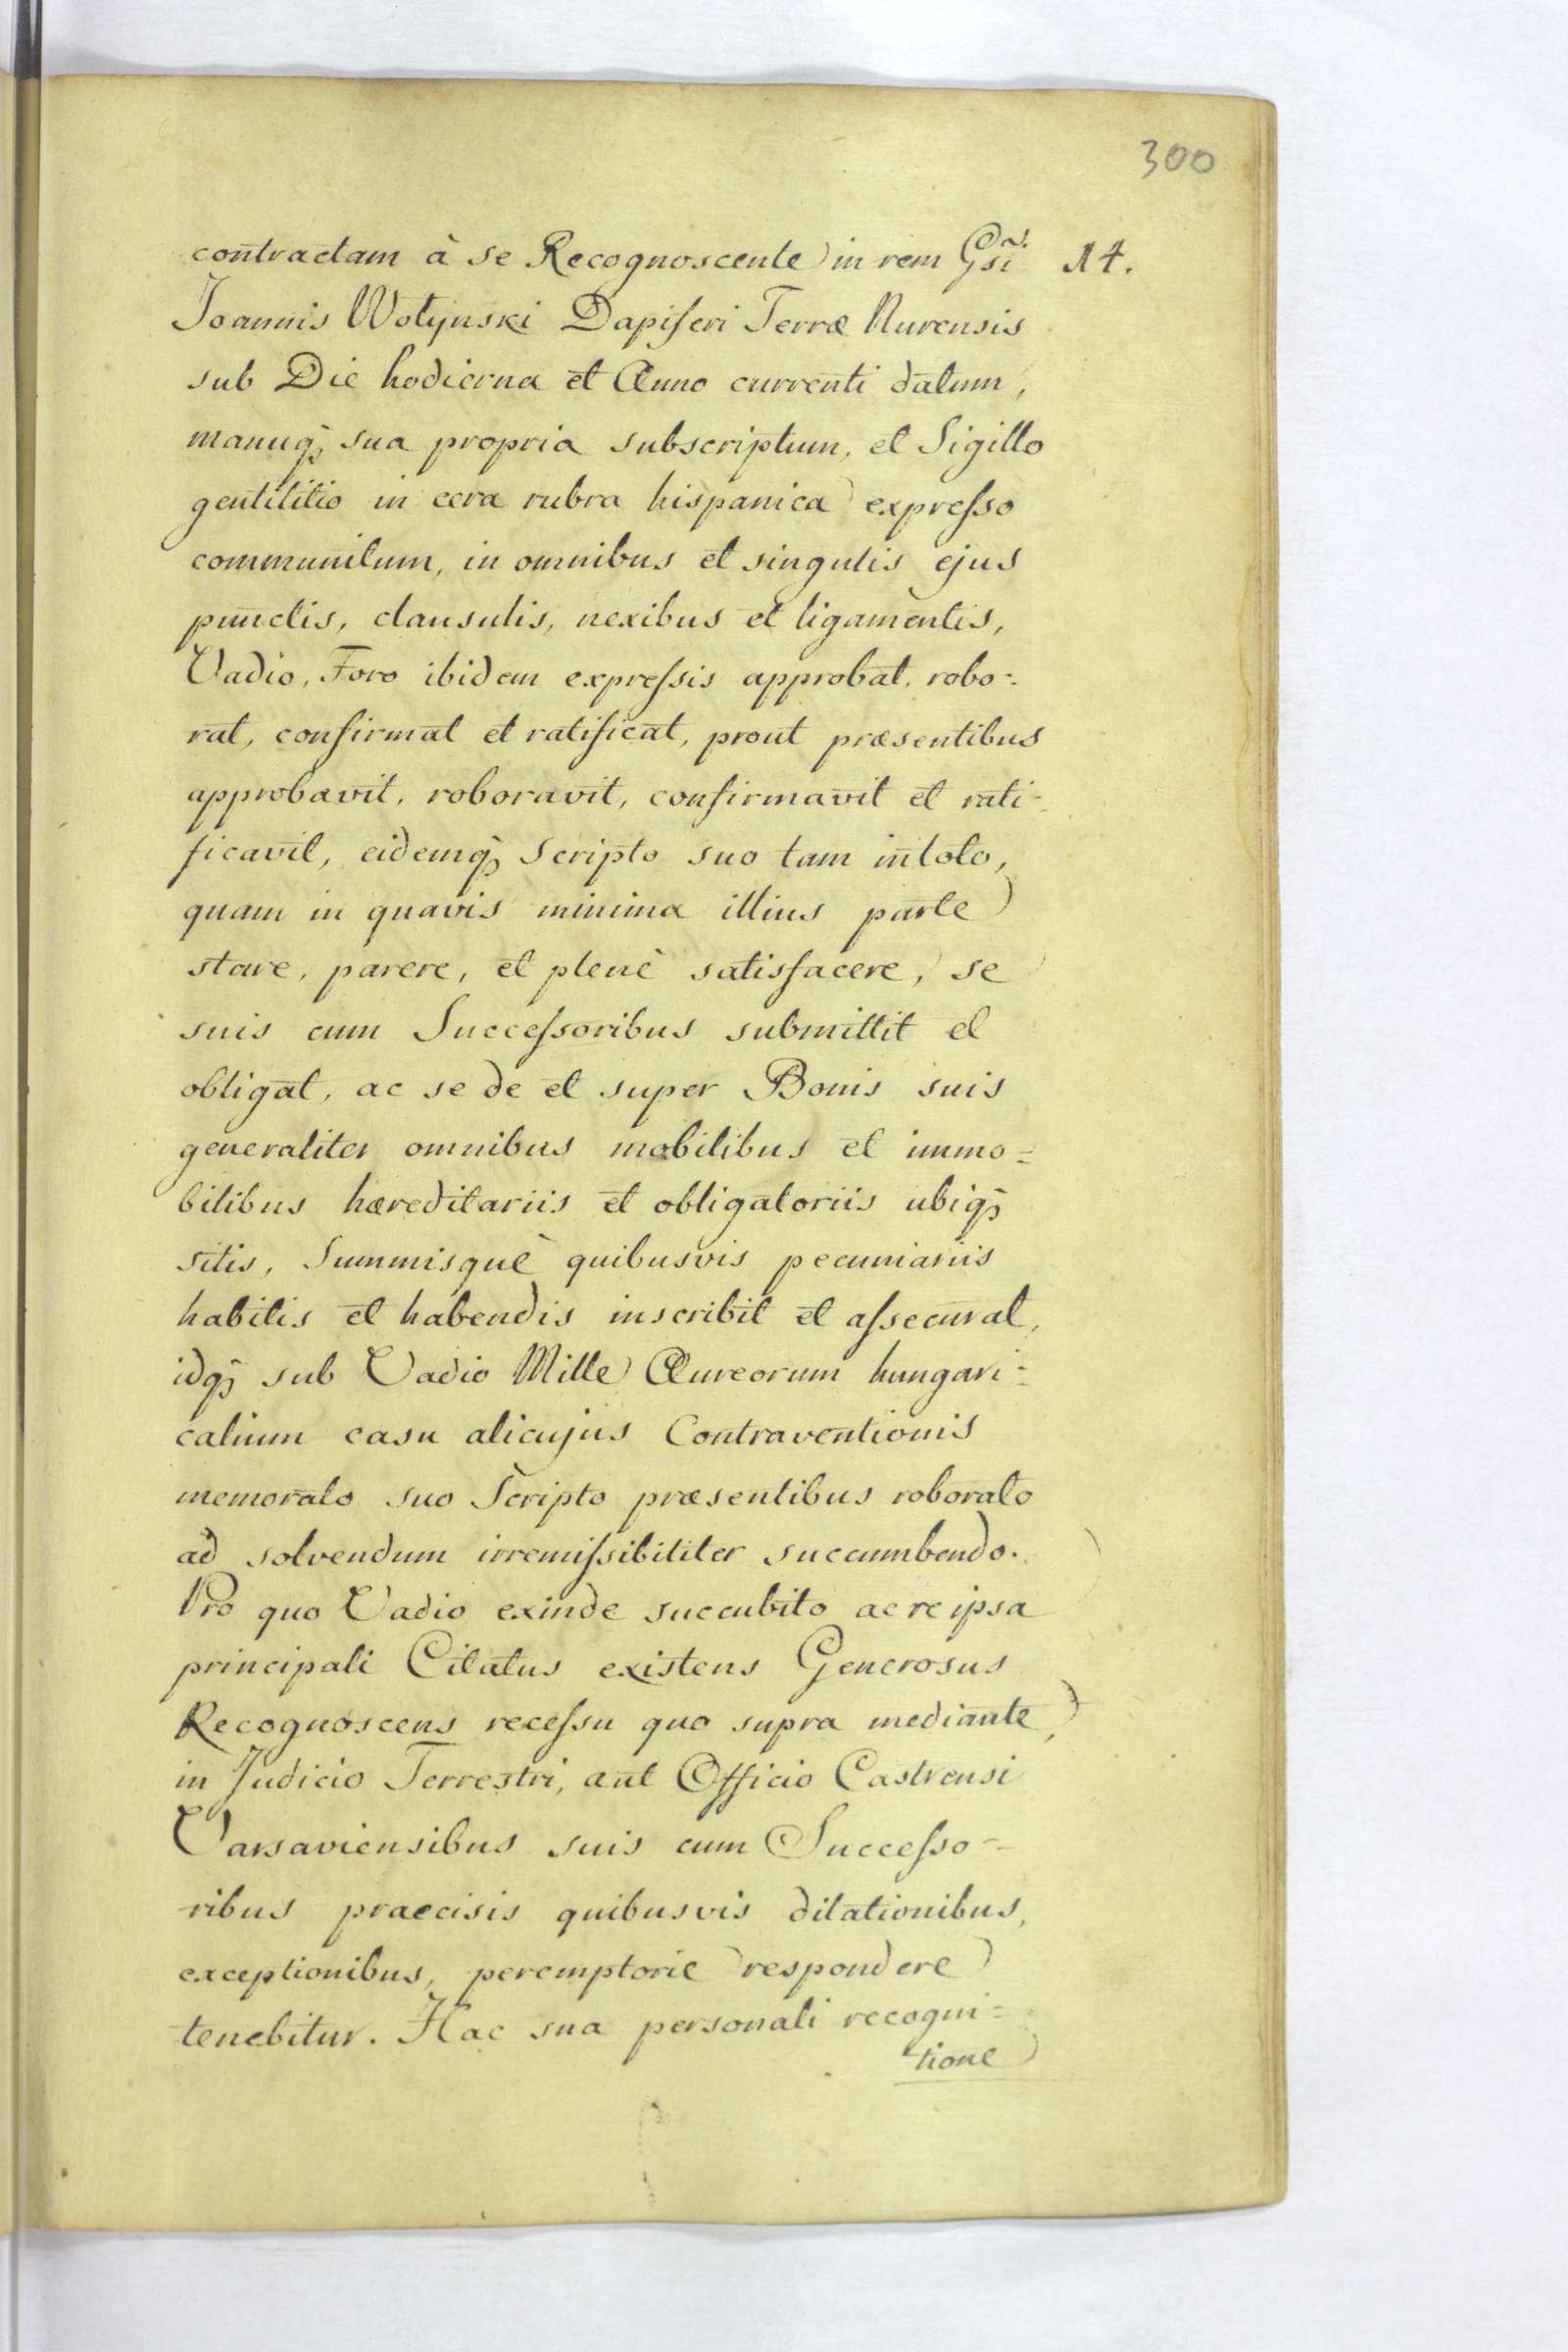 300
contractam à se Recognoscente in rem Gsi 14.
Joannis Wołynski Dapiferi Terræ Nurensis
sub Die hodierna et Anno currenti datum,
manuq̃ sua propria subscriptum, et Sigillo
gentilitio in cera rubra hispanica expreſso
communitum, in omnibus et singulis ejus
punctis, clausulis, nexibus et ligamentis,
Vadio, Foro ibidem expreſsis approbat, robo-
rat, confirmat et ratificat, prout præsentibus
approbavit, roboravit, confirmavit et rati-
ficavit, eidemq̃ Scripto suo tam intoto,
quam in quavis minima illius parte
stare, parere, et plenè satisfacere, se
suis cum Succeſsoribus submittit et
obligat, ac se de et super Bonis suis
generaliter omnibus mobilibus et immo=
bilibus hæreditariis et obligatoriis ubiq̃
sitis, Summisquè quibusvis pecuniariis
habitis et habendis inscribit et aſsecurat,
idq̃ sub Vadio Mille Aureorum hungari=
calium casu alicujus Contraventionis
memorato suo Scripto præsentibus roborato
ad solvendum irremiſsibiliter succumbendo.
Pro quo Vadio exinde succubito ac re ipsa
principali Citatus existens Generosus
Recognoscens receſsu quo supra mediante,
in Judicio Terrestri, aut Officio Castrensi
Varsaviensibus suis cum Succeſso-
ribus praecisis quibusvis dilationibus,
exceptionibus, peremptorie respondere
tenebitur. Hac sua personali recogni=
tione